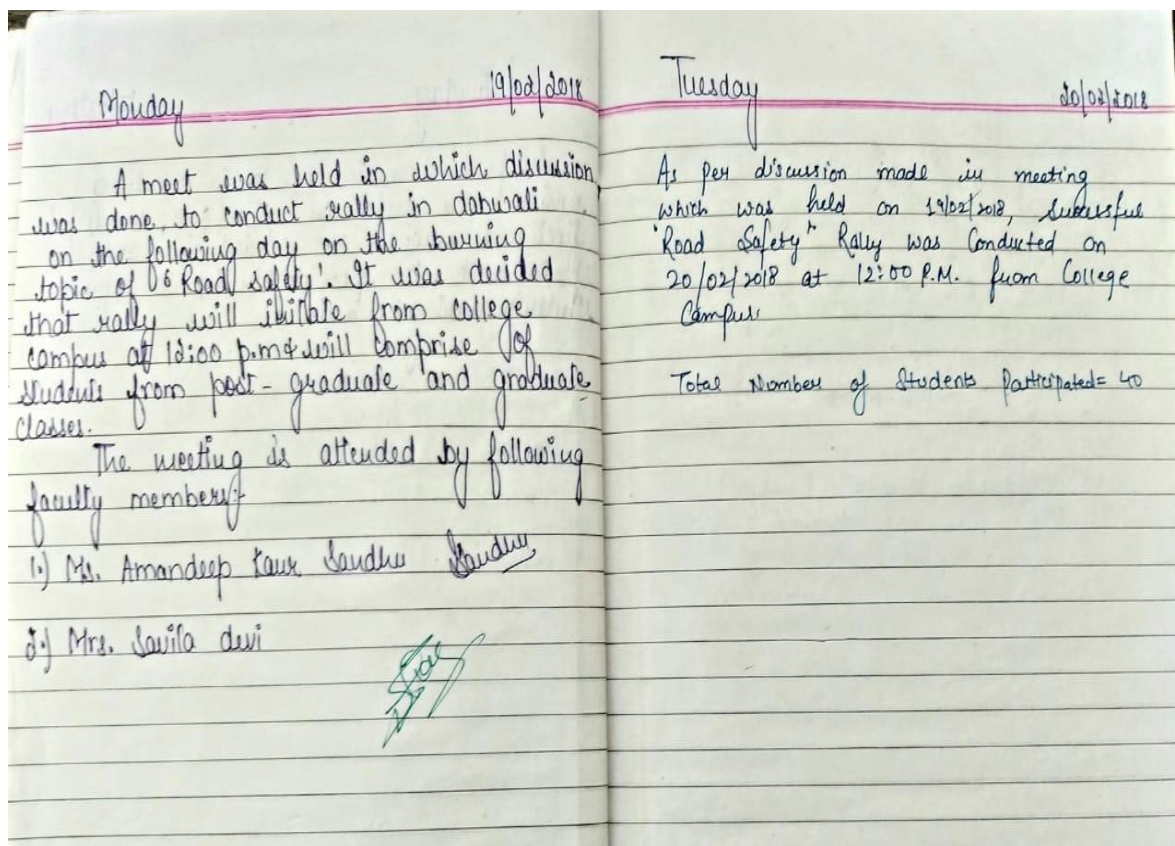 Monday 19/02/2018
A meet was held in which discussion
was done, to conduct rally in dabwali
on the following day on the burning
topic of "Road safety'. It was decided
that rally will initiate from college
campus at 12:00 p.m & will comprise of
students from post-graduate and graduate
classes.
The meeting is attended by following
faculty members:-
1.) Ms. Amandeep Kaur Sandhu Sandhu
2.) Mrs. Savita devi
Tuesday 20/02/2018
As per discussion made in meeting
which was held on 19/02/2018, Successful
"Road Safety" Rally was Conducted on
20/02/2018 at 12:00 P.M. from College
Campus.
Total Number of Students Participated= 40